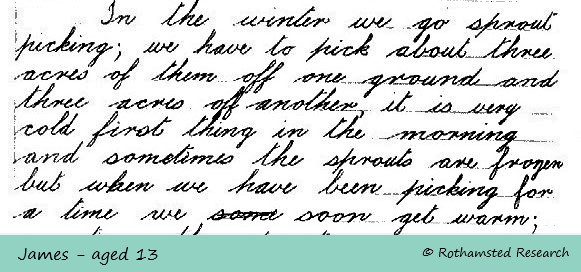 In the winter we go sprout
picking; we have to pick about three
acres of them off one ground and
three acres off another, it is very
cold first thing in the morning
and sometimes the sprouts are frozen
but when we have been picking for
a time we some soon get warm;
James - aged 13
© Rothamsted Research